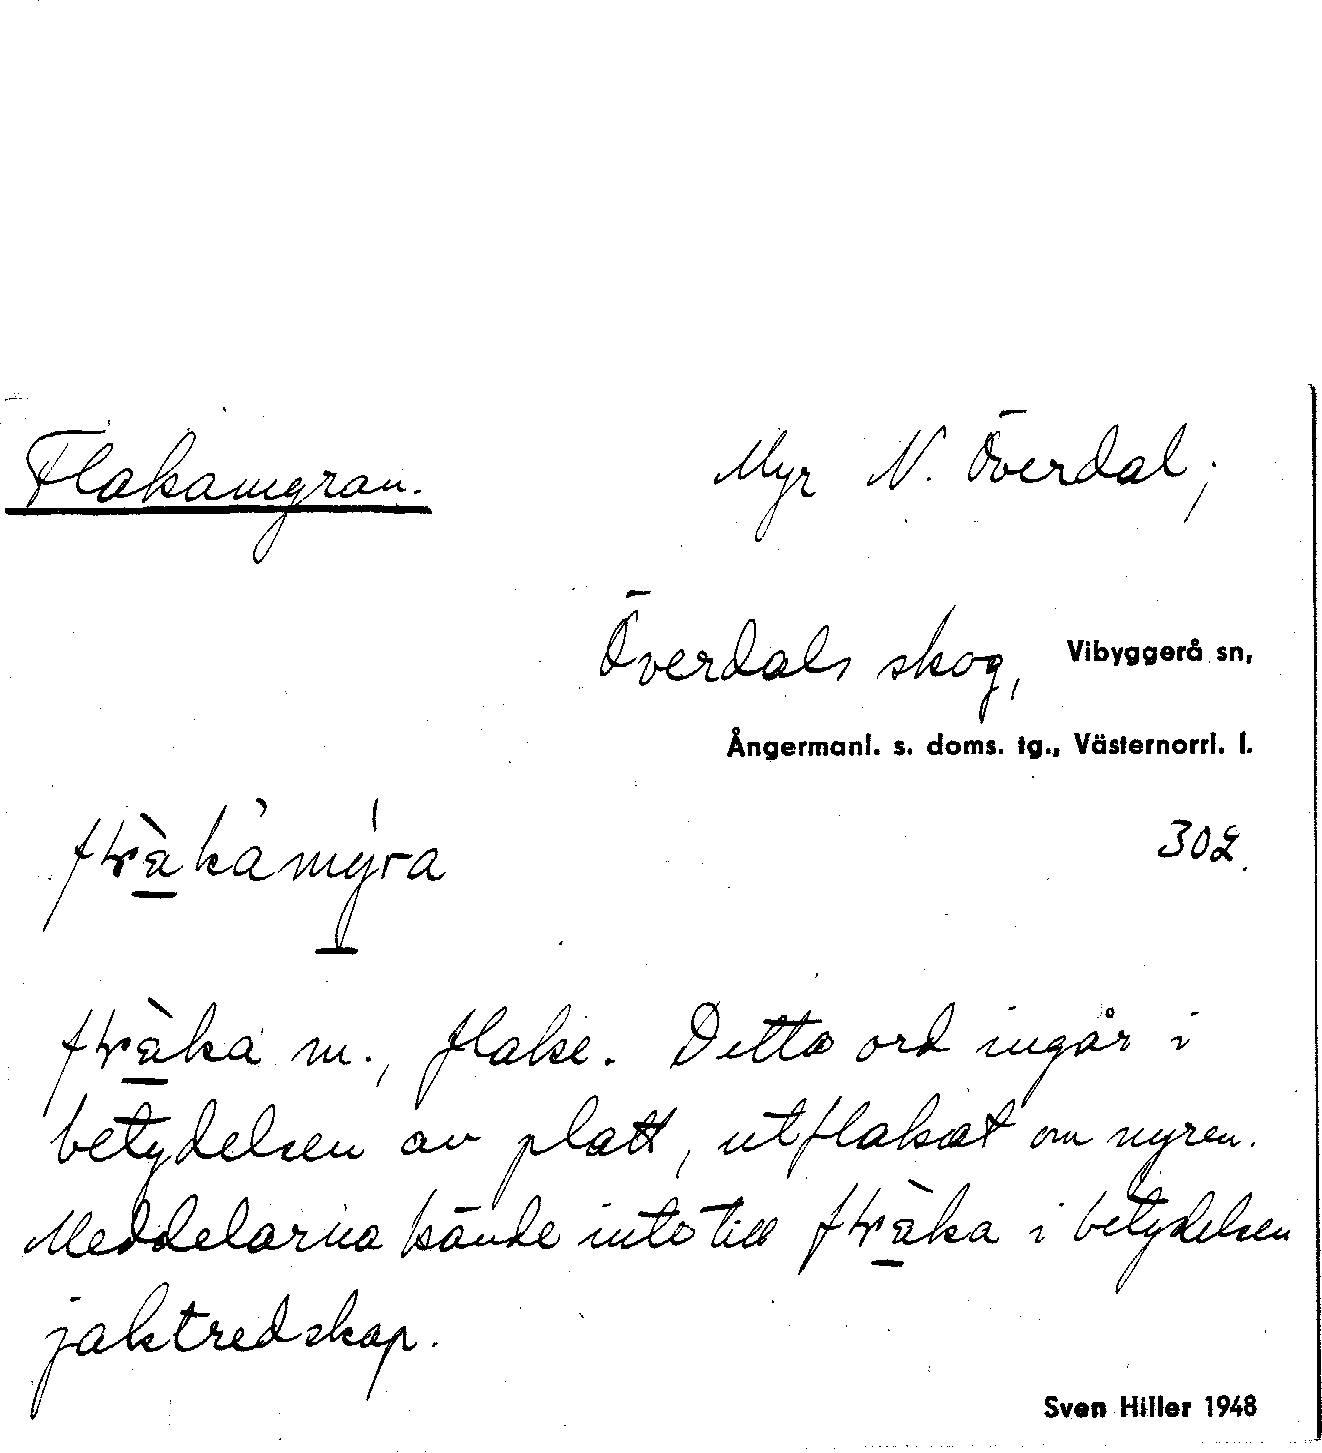 Flakamyran.
Myr N. Överdal;
Överdals skog, Vibyggerå sn,
Ångermanl. s. doms. tg., Västernorrl. l.
302.
m., flake. Detta ord ingår i
betydelsen av platt, utflakat om myren.
Meddelarna kände inte till i betydelsen
jaktredskap.
Sven Hiller 1948